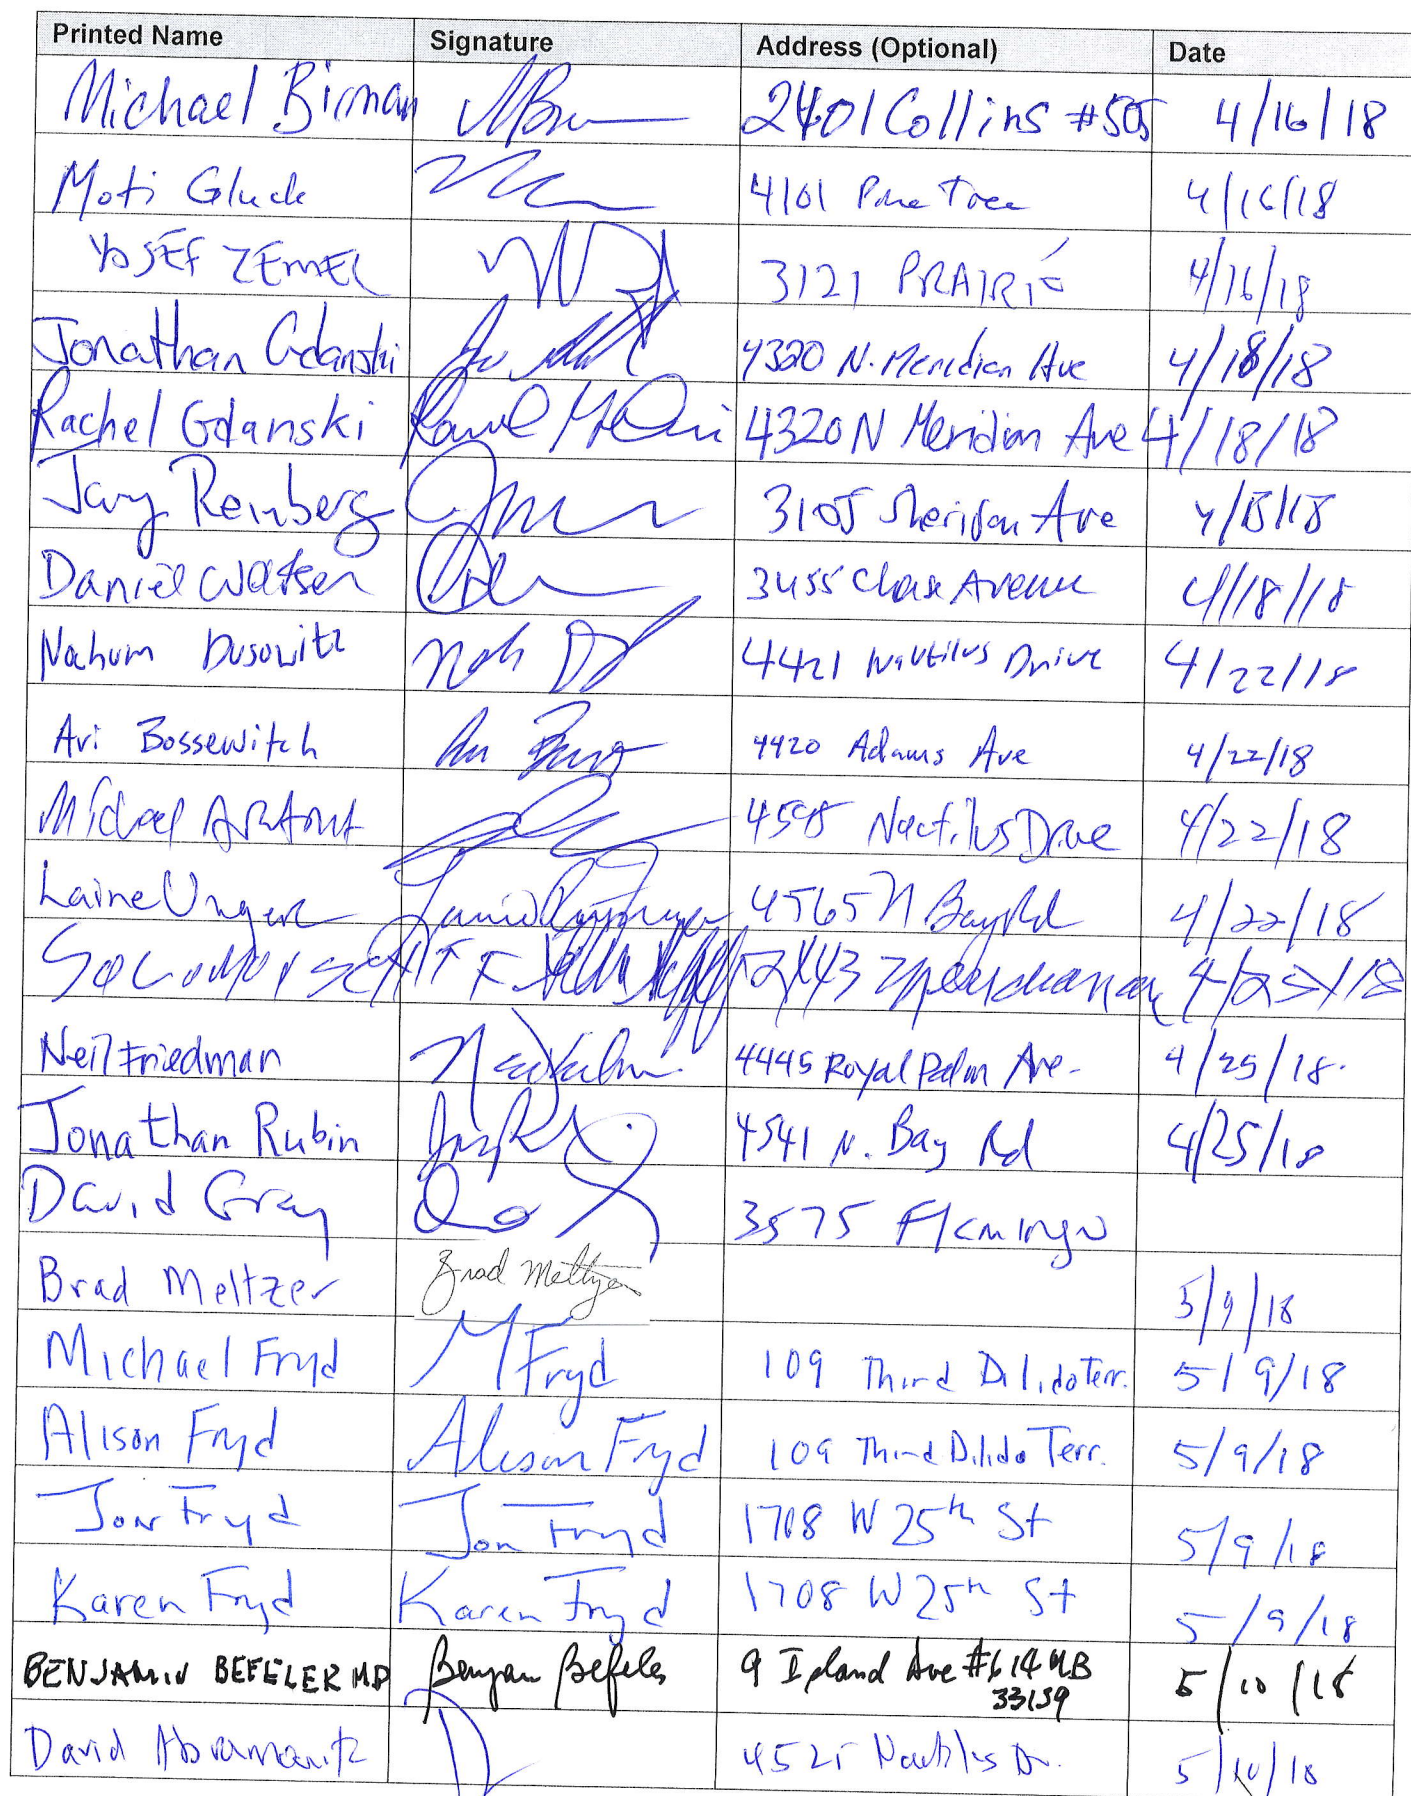 Printed Name Signature Address (Optional) Date
Michael Birman 2401 Collins #505 4/16/18
Moti Gluck 4101 Pine Tree 4/16/18
YOSEF ZEMEL 3121 PRAIRIE 4/16/18
Jonathan Gdanski 4320 N. Meridian Ave 4/18/18
Rachel Gdanski 4320 N Meridian Ave 4/18/18
Reinberg 3105 Sheridan Ave 4/18/18
Daniel 3455 Chase Avenue 4/18/18
Nahum Dusowitz 4421 Nautilus Drive 4/22/18
Ari Bossewitch 4420 Adams Ave 4/22/18
Michael Nautilus Drive 4/22/18
Laine Unger 4565 N Bay Rd 4/22/18
Neil Friedman 4445 Royal Palm Ave. 4/25/18.
Jonathan Rubin 4541 N. Bay Rd 4/25/18
David Gray 3575 Flamingo
Brad Meltzer Brad Meltzer 5/9/18
Michael Fryd M Fryd 109 Third Dilido Terr. 5/9/18
Alison Fryd Alison Fryd 109 Third Dilido Terr. 5/9/18
Jon Fryd Jon Fryd 1708 W 25th St 5/9/18
Karen Fryd Karen Fryd 1708 W 25th St 5/9/18
BENJAMIN BEFELER MD Benjamin Befeler 9 Island Ave #614 MB
33139 5/10/18
David Abramowitz 4525 Nautilus Dr. 5/10/18